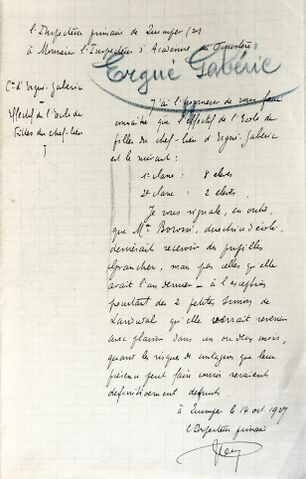 l'Inspecteur primaire de Quimper
à Monsieur l'Inspecteur d'Académie du Finistère
Ergué Gabéric
Cne d'Ergué-Gabéric
Effectif de l'école de
filles du chef-lieu
J'ai l'honneur de vous faire
connaître que l'effectif de l'école de
filles du chef-lieu d'Ergué-Gabéric
est le suivant :
1e classe : 8 élèves
2e classe : 2 élèves.
Je vous signale, en outre,
que Mme directrice d'école,
désirerait recevoir des pupilles
Grancher, mais pas celles qu'elle
avait l'an dernier — à l'exception
pourtant des 2 petites
qu'elle verrait revenir
avec plaisir dans un ou deux mois,
quand le risque de contagion que leur
présence peut faire courir seraient
définitivement
à Quimper le 14 oct. 1927
l'Inspecteur primaire